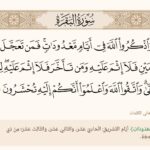 سُورَةُ البَقَرَةِ
وَاذْكُرُوا اللَّهَ فِي أَيَّامٍ مَعْدُودَاتٍ فَمَنْ تَعَجَّلَ
فَلَا إِثْمَ عَلَيْهِ وَمَنْ تَأَخَّرَ فَلَا إِثْمَ عَلَيْهِ
وَاتَّقُوا اللَّهَ وَاعْلَمُوا أَنَّكُمْ إِلَيْهِ تُحْشَرُونَ
أيام التشريق: الحادي عشر، والثاني عشر، والثالث عشر؛ من ذي